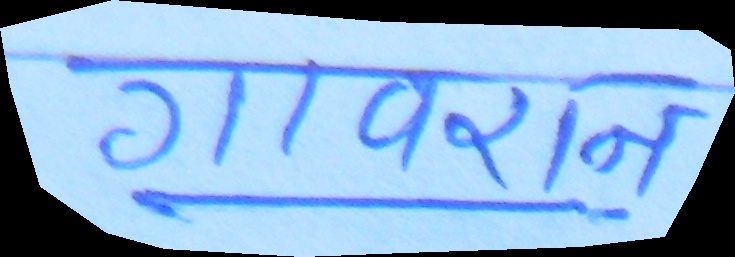 गावरान